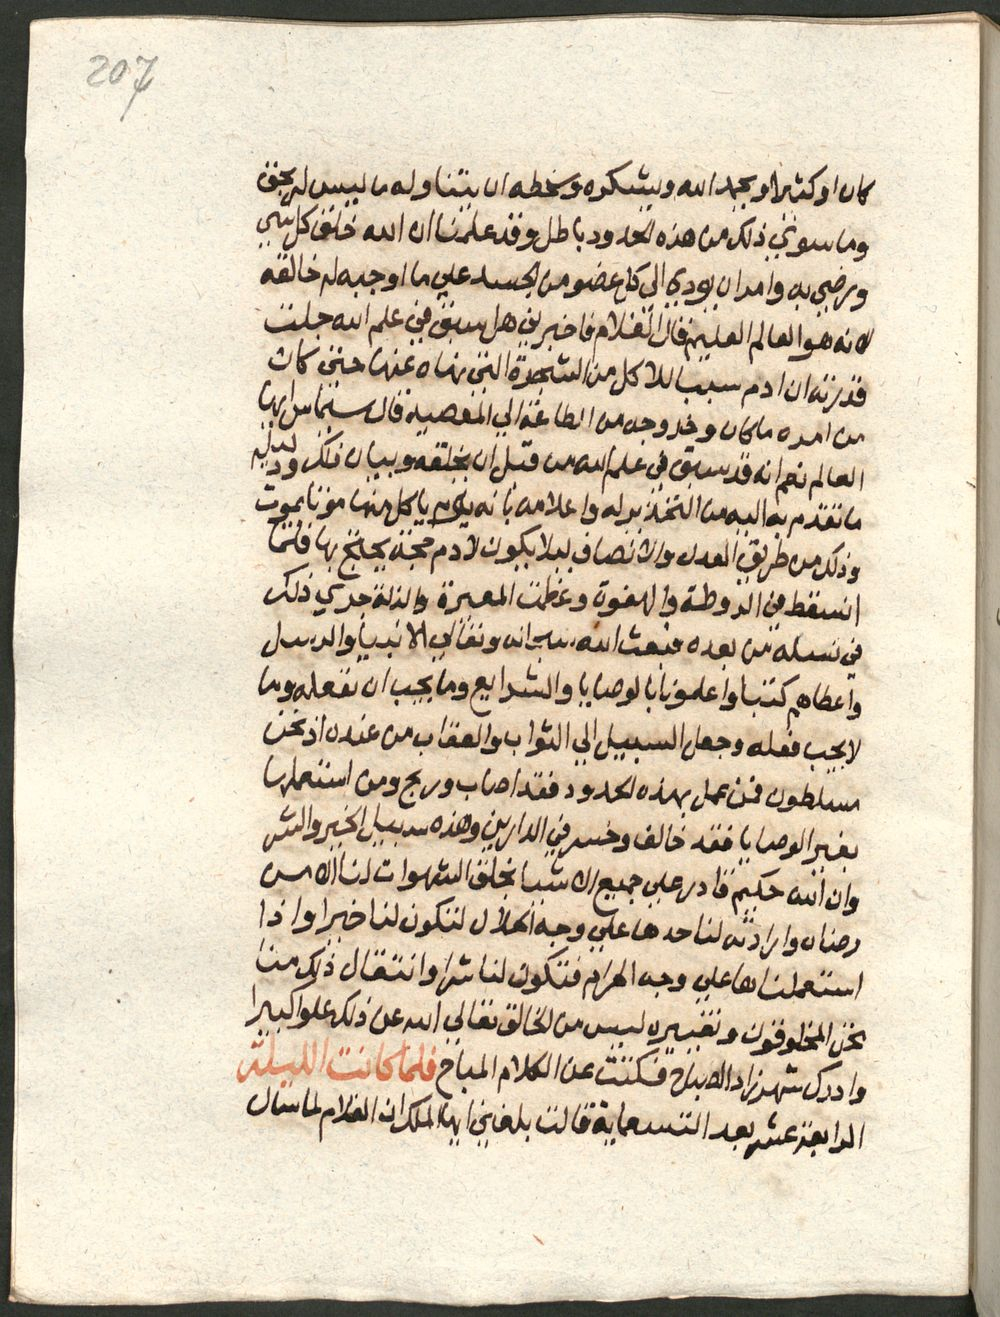 207
كان او كثيرا ويحمد الله ويشكره وسخطه ان يتناوله ما ليس له بحق
وما سوي ذلك من هذه الحدود باطل وقد علمنا ان الله خلق كل شي
ورضي به وامر ان يودي الي كل عضو من الجسد علي ما اوجبه له خالقه
لانه هو العالم العليم قال الغلام فاخبريني هل سبق في علم الله جلت
قدرته ان ادم سببا للاكل من الشجرة التي نهاه عنها حتي كان
من امره ما كان وخروجه من الطاعة الي المعصية قال شيماس ايها
العالم نعم انه قد سبق في علم الله من قبل ان يخلقه وبيان ذلك ودليله
ما تقدم به اليه من التحذير له واعلامه بانه يوم ياكل منها موتا يموت
وذلك من طريق العدل والانصاف ليلا يكون لادم حجة يحتج بها فلما
انسقط في الورطة والهفوة وعظمت المعيرة والذلة جري ذلك
في نسله من بعده فبعث الله سبحانه وتعالي الانبيا والرسل
واعطاهم كتبا واعلمونا بالوصايا والشرايع وما يجب ان نفعله وما
لا يجب فعله وجعل السبيل الي الثواب والعقاب من عنده اذ نحن
مسلطون فمن عمل بهذه الحدود فقد اصاب وربح ومن استعملها
بغير الوصايا فقد خالف وخسر في الدارين وهذه سبيل الخير والشر
وان الله حكيم قادر علي جميع الاشيا بخلق الشهوات لنا الا من
رضاه وارادته لنا حدها علي وجه الحلال لتكون لنا خيرا واذا
استعملناها علي وجه الحرام فتكون لنا شرا وانتقال ذلك منا
نحن المخلوقون وتغييره ليس من الخالق تعالي الله عن ذلك علوا كبيرا
وادرك شهرزاد الصباح فسكتت عن الكلام المباح فلما كانت الليلة
الرابعة عشر بعد التسعماية قالت بلغني ايها الملك ان الغلام لما سال